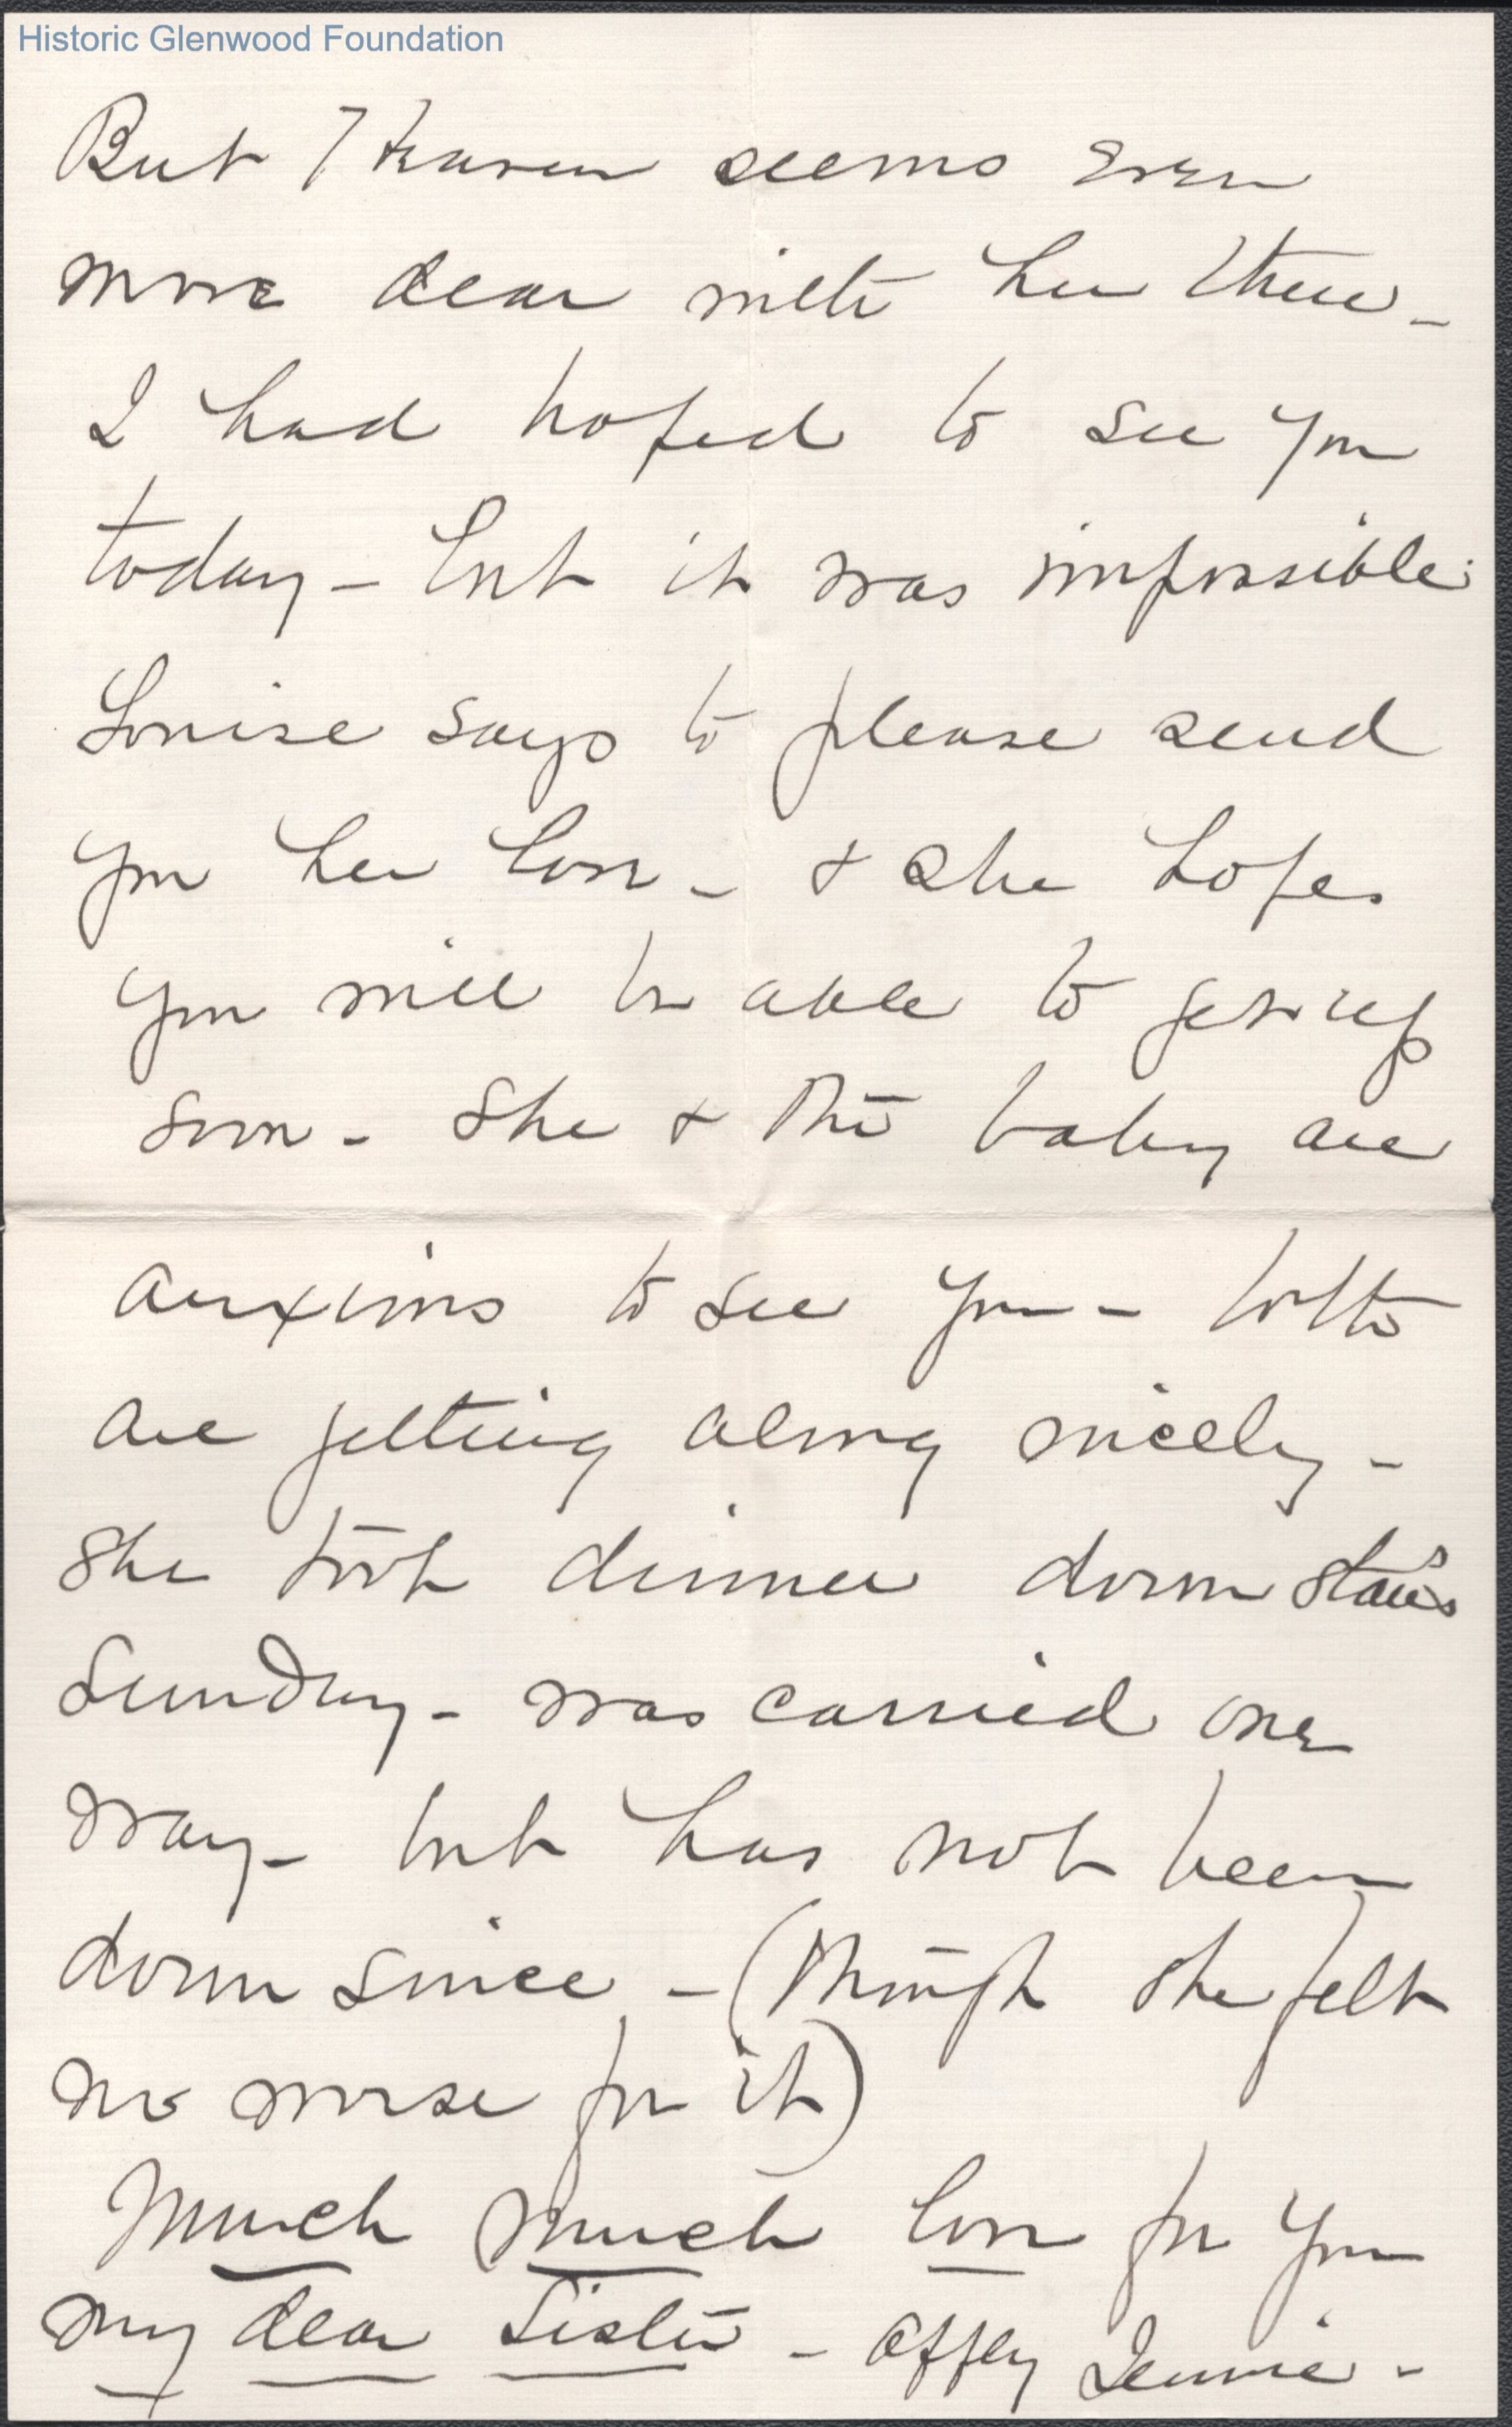 Historic Glenwood Foundation
But Heaven seems even
more dear with her there -
I had hoped to see you
today - but it was impossible.
Louise says to please send
you her love - & she hopes
you will be able to get up
soon - She & the baby are
anxious to see you - both
are getting along nicely -
She took dinner down stairs
Sunday - was carried one
way - but has not been
down since - (though she felt
no worse for it)
Much much love for you
my dear Sister - Affly Jennie -